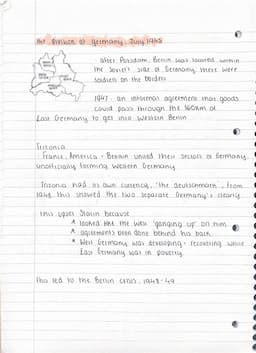 The Division of Germany, July 1945
After Potsdam, Berlin was located within
the Soviet's side of Germany, there were
soldiers on the borders
1947 - an informal agreement that goods
could pass through the 160km of
East Germany to get into Western Berlin
Trizonia
France, America + Britain united their sectors of Germany,
unofficially forming Western Germany
Trizonia had its own currency, 'The deutschmark', from
1948, this showed the two separate Germany's clearly
This upset Stalin because
* looked like the west 'ganging up' on him
* agreements been done behind his back
* West Germany was developing + recovering while
East Germany was in poverty
This led to the Berlin Crisis, 1948-49